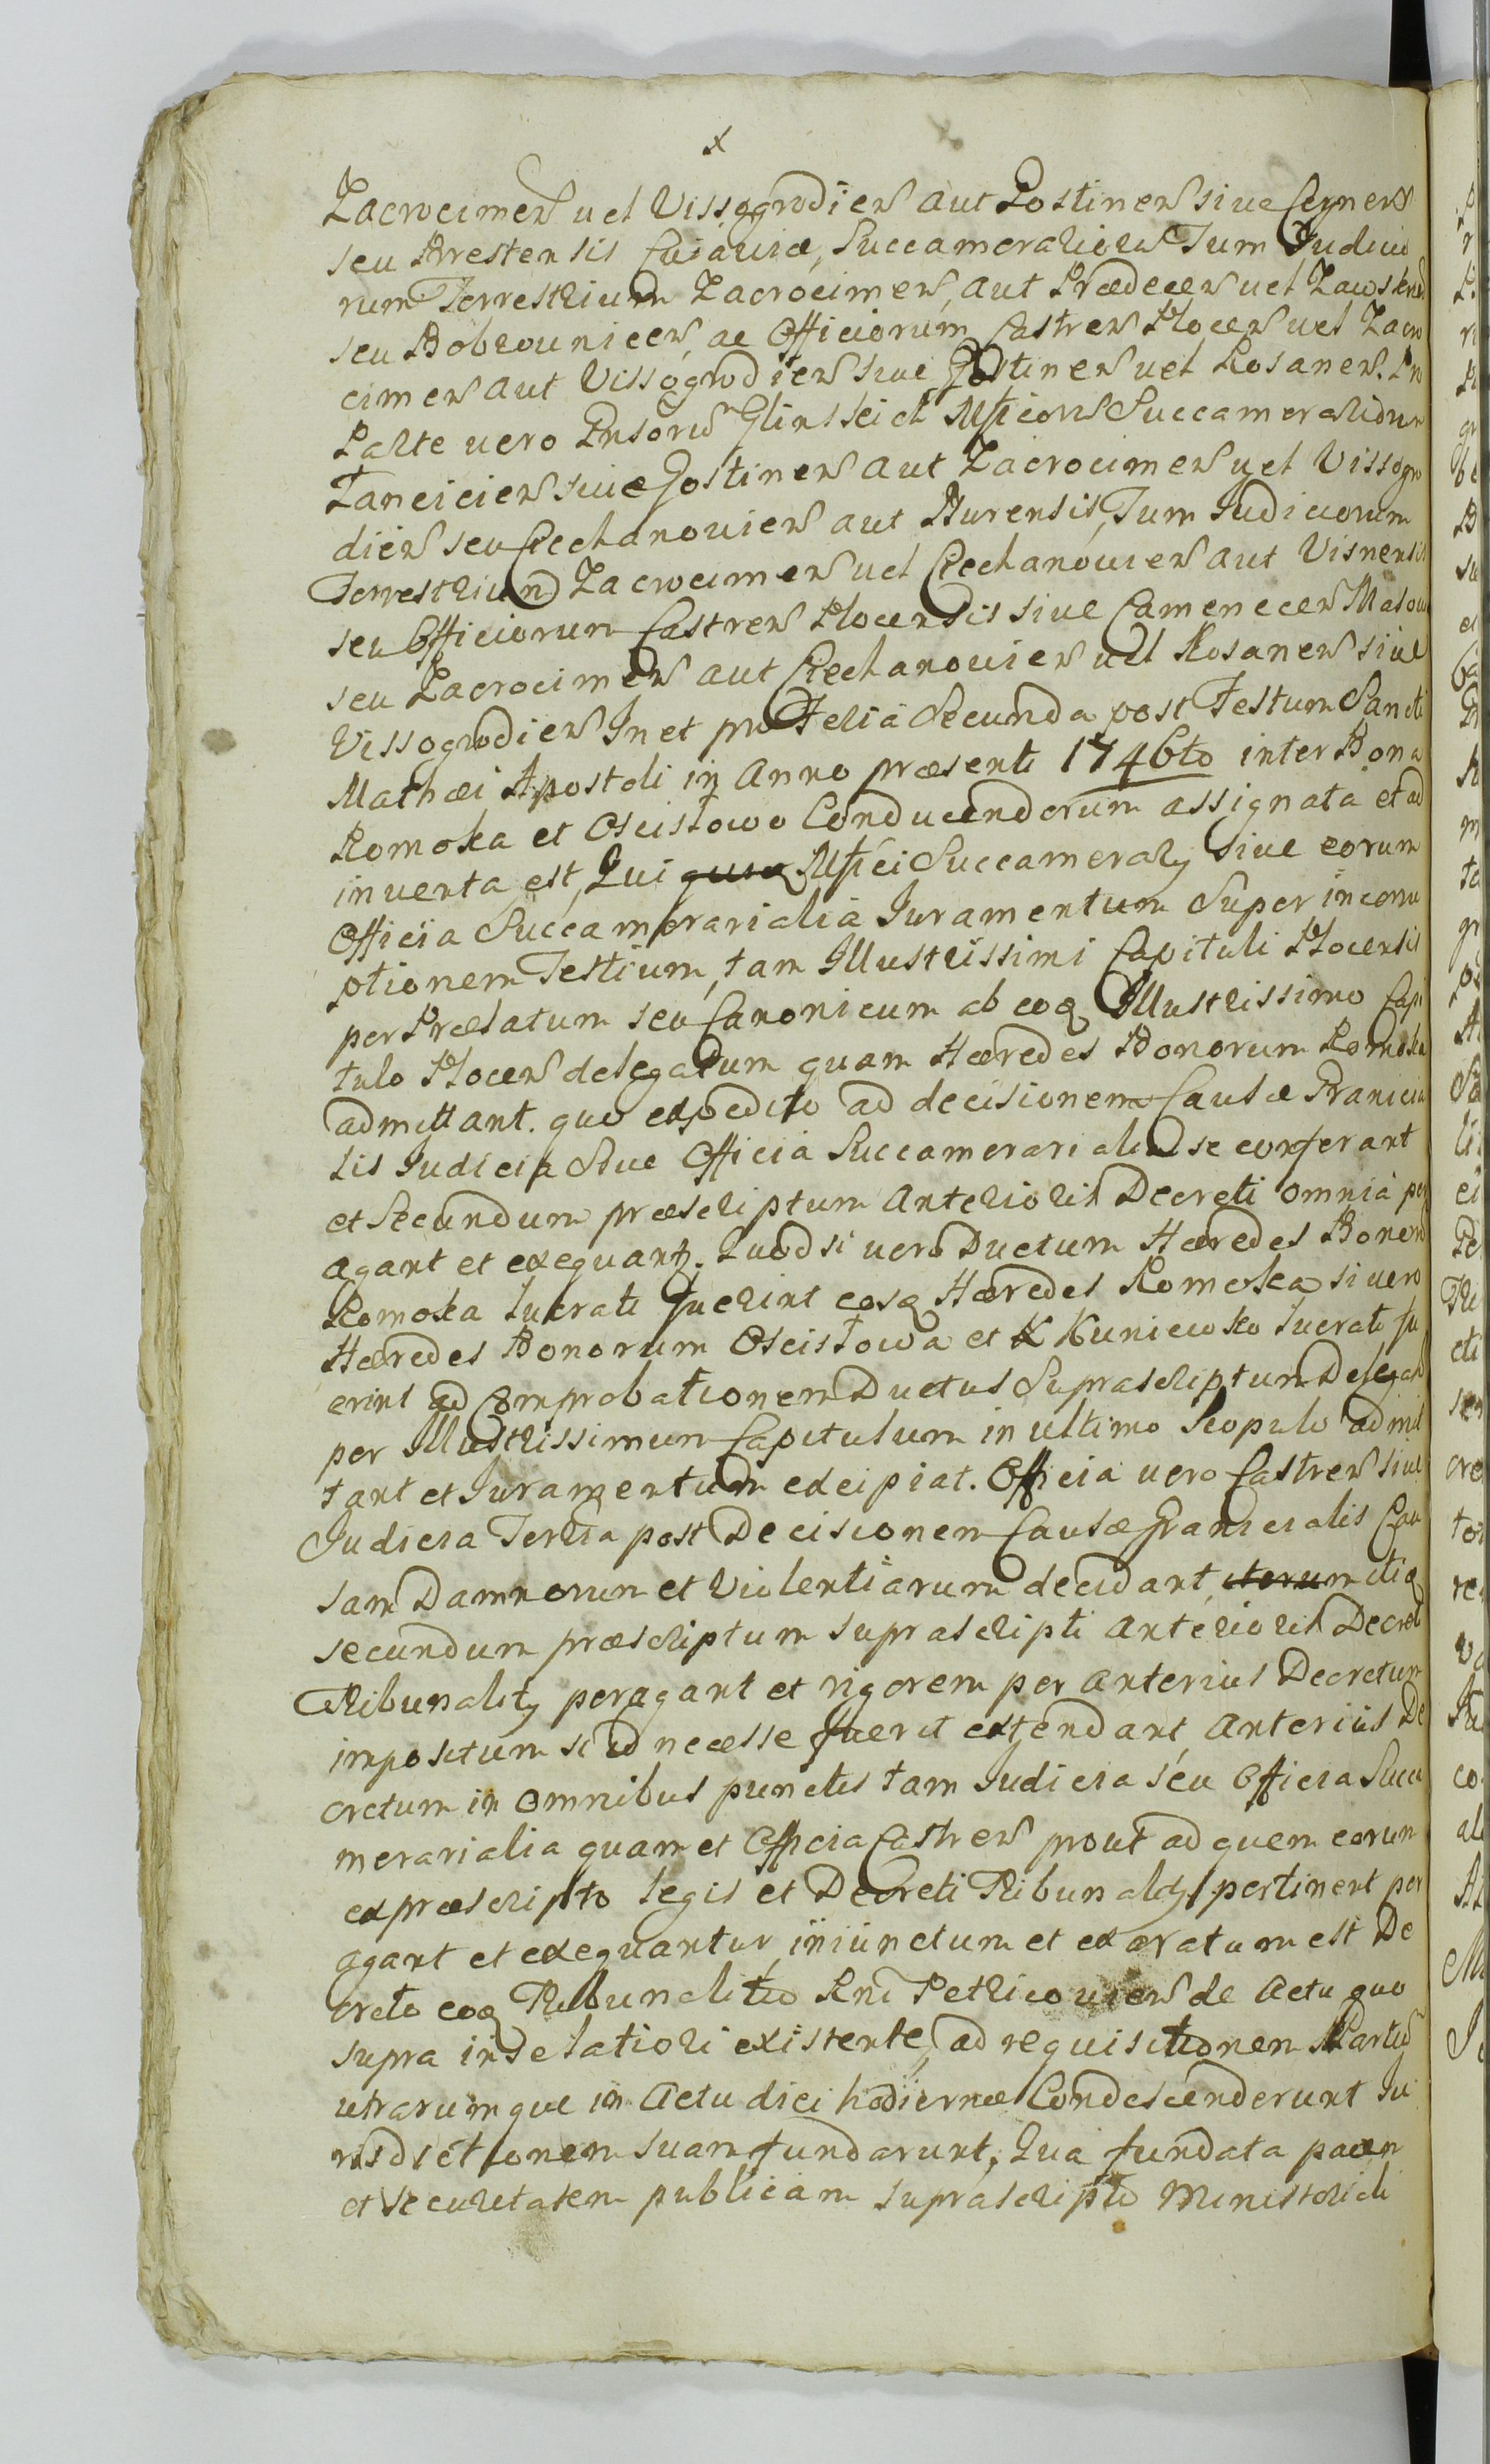 x
Zacrocimen uel Vissogrodien aut Gostinen siue Cernen
seu Brestensis Cuiauiæ, Succameralium Tum Iudicio
rum Terrestrium Zacrocimen, aut Prædecen uel Zawskrn
seu Bobrounicen, ac Officiorum Castren Plocen uel Zacro
cimen aut Vissogrodien siue Gostinen uel Rosanen. Pro
Parte uero Pnsorum Glinski et Mficorum Succameralium
Lancicien siue Gostinen aut Zacrocimen uel Vissogro
dien seu Ciechanouien aut Nurensis, Tum Iudiciorum
Terrestrium Zacrocimen uel Ciechanouien aut Visnensis
seu Officiorum Castren Plocensis siue Camenecen Masou
seu Zacrocimen aut Ciechanouien uel Rosanen siue
Vissogrodien In et pro Feria Secunda post Festum Sancti
Mathæi Apostoli in Anno præsenti 1746to inter Bona
Romoka et Oscisłowo Conducendorum assignata et ad
inuenta est, Qui Mfici Succameralij siue eorum
Officia Succamerarialia Iuramentum Super incorru
ptionem Testium, tam Illustrissimi Capituli Plocensis
per Prælatum seu Canonicum ab eoq Illustrissimo Capi
tulo Plocen delegatum quam Hæredes Bonorum Romoka
admittant. quo expedito ad decisionem Causæ Granicia
lis Iudicia Siue Officia Succamerarialia se conferant
et Secundum præscriptum Anterioris Decreti omnia per
agant et exequant. Quod si uero Ductum Hæredes Bonorum
Romoka lucrati fuerint eosq Hæredes Romoka, si uero
Hæredes Bonorum Oscisłowa et K Kuniewko lucrati fu
erint ad Comprobationem Ductus Suprascriptum Delegat
per Illustrissimum Capitulum in ultimo Scopulo admit
tant et Iuramentum excipiat. Officia uero Castren siue
Iudicia Terrtia post Decisionem Causæ Granicialis Cau
sam Damnorum et Violentiarum decidant, iterum itiq
secundum præscriptum suprascripti Anterioris Decreti
Tribunalitij peragant et rigorem per Anterius Decretum
impositum si id necesse fuerit extendant, Anterius De
cretum in omnibus punctis tam Iudicia seu Officia Succa
merarialia quam et Officia Castren prout ad quem eorum
ex præscripto legis et Decreti Tribunalitij pertinent per
agant et exequantur, iniunctum et exaratum est De
creto eoq Tribunalitio Rni Petricouien de Actu quo
supra in Se latiori existente, ad requisitionem Partium
utrarumque in Actu diei hodiernæ Condescenderunt Iu
risdictionem suam fundarunt, Qua fundata pacem
et Securitatem publicam suprascripto Ministeriali